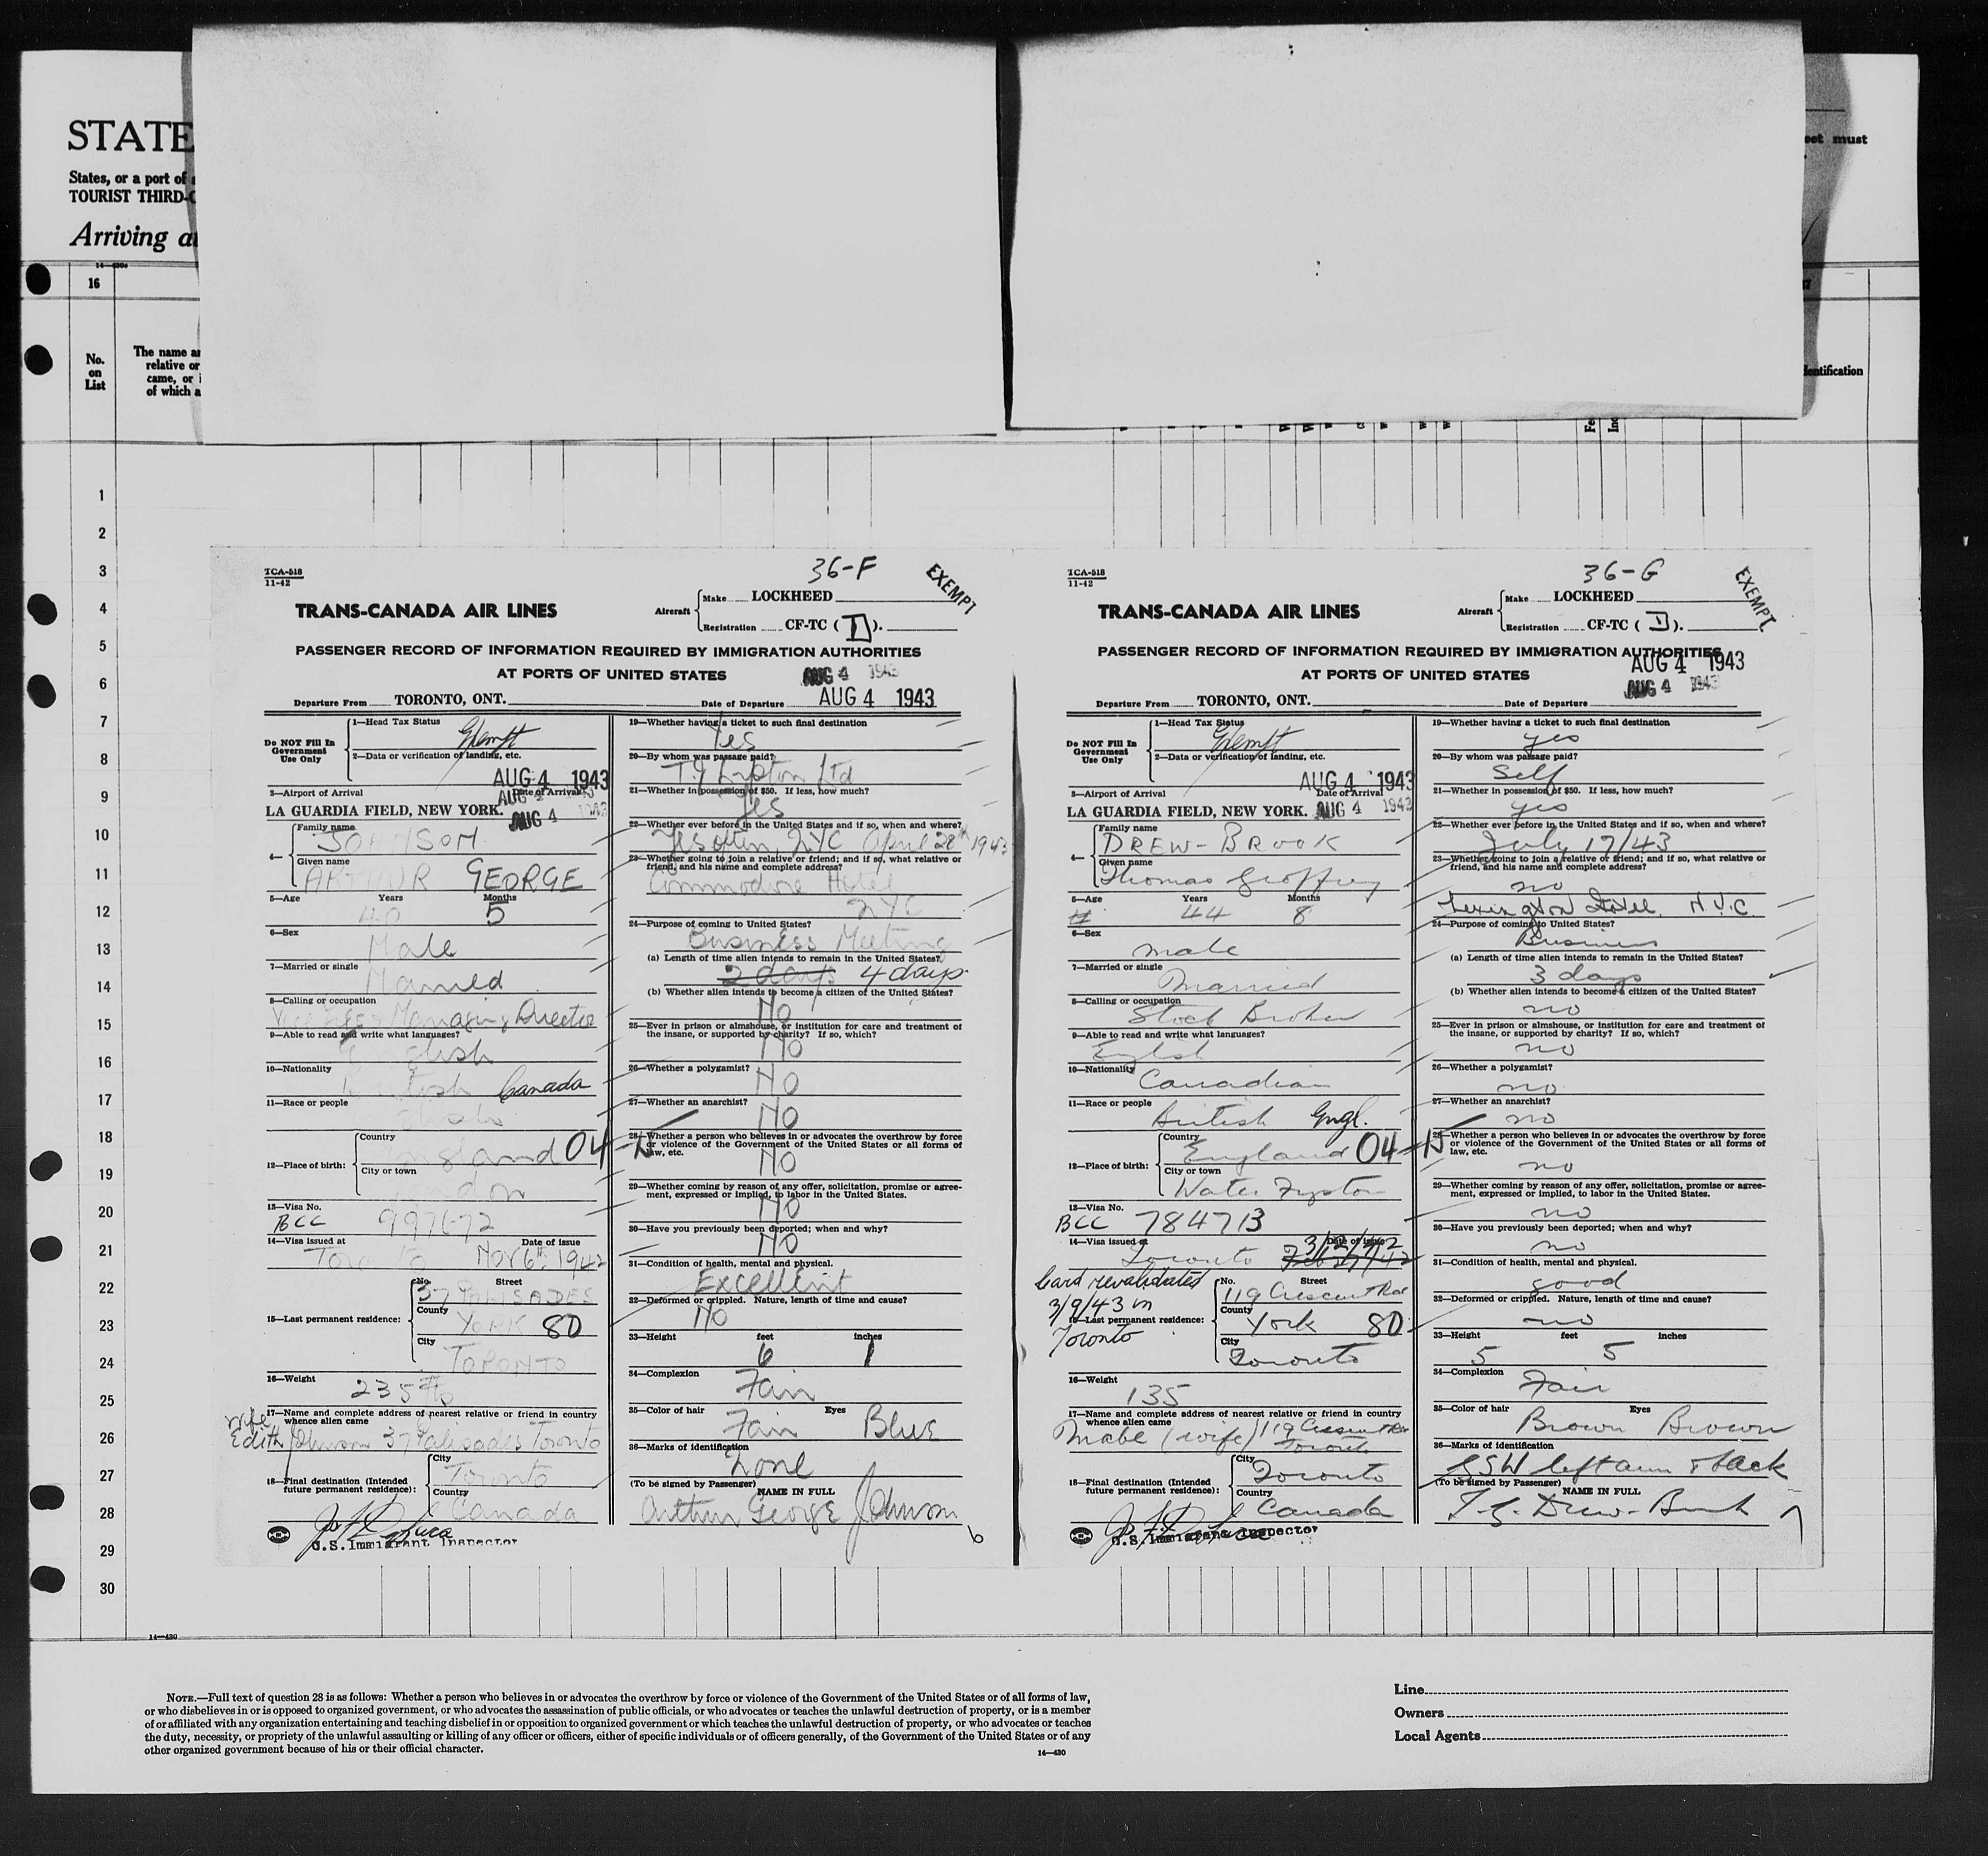 STATE
States, or a port of
TOURIST THIRD-C
Arriving at
eet must
14—430a
16
No.
on
List
The name an
relative or
came, or i
of which a
dentification
1
2
3
4
5
6
7
8
9
10
11
12
13
14
15
16
17
18
19
20
21
22
23
24
25
26
27
28
29
30
TCA-518
11-42
36-F
EXEMPT
TRANS-CANADA AIR LINES
Aircraft
Make LOCKHEED
Registration CF-TC (D).
PASSENGER RECORD OF INFORMATION REQUIRED BY IMMIGRATION AUTHORITIES
AT PORTS OF UNITED STATES
AUG 4 1943
Departure From TORONTO, ONT. Date of Departure AUG 4 1943
Do NOT Fill In
Government
Use Only
1—Head Tax Status
Exempt
2—Data or verification of landing, etc.
AUG 4 1943
3—Airport of Arrival Date of Arrival
AUG 4 1943
LA GUARDIA FIELD, NEW YORK. AUG 4 1943
4— Family name
JOHNSON
Given name
ARTHUR GEORGE
5—Age Years Months
40 5
6—Sex
Male
7—Married or single
Married
8—Calling or occupation
Vice Pres & Managing Director
9—Able to read and write what languages?
English
10—Nationality
British Canada
11—Race or people
12—Place of birth:
Country
England 04
City or town
London
13—Visa No.
BCC 997672
14—Visa issued at Date of issue
Toronto Nov 6th 1942
15—Last permanent residence:
No. Street
37 PALISADES
County
YORK 80
City
TORONTO
16—Weight
235 #
17—Name and complete address of nearest relative or friend in country
whence alien came
wife
Edith Johnson 37 Palisades Toronto
18—Final destination (Intended
future permanent residence):
City
Toronto
Country
Canada
U.S. Immigrant Inspector
19—Whether having a ticket to such final destination
Yes
20—By whom was passage paid?
T.J. Lipton Ltd
21—Whether in possession of $50. If less, how much?
Yes
22—Whether ever before in the United States and if so, when and where?
Yes often, NYC April 28th 1943
23—Whether going to join a relative or friend; and if so, what relative or
friend, and his name and complete address?
Commodore Hotel
NYC
24—Purpose of coming to United States?
Business Meeting
(a) Length of time alien intends to remain in the United States?
2 days 4 days
(b) Whether alien intends to become a citizen of the United States?
No
25—Ever in prison or almshouse, or institution for care and treatment of
the insane, or supported by charity? If so, which?
No
26—Whether a polygamist?
No
27—Whether an anarchist?
No
28—Whether a person who believes in or advocates the overthrow by force
or violence of the Government of the United States or all forms of
law, etc.
No
29—Whether coming by reason of any offer, solicitation, promise or agree-
ment, expressed or implied, to labor in the United States.
No
30—Have you previously been deported; when and why?
No
31—Condition of health, mental and physical.
Excellent
32—Deformed or crippled. Nature, length of time and cause?
No
33—Height feet inches
6 1
34—Complexion
Fair
35—Color of hair Eyes
Fair Blue
36—Marks of identification
None
(To be signed by Passenger) NAME IN FULL
Arthur George Johnson
6
TCA-518
11-42
36-G
EXEMPT
TRANS-CANADA AIR LINES
Aircraft
Make LOCKHEED
Registration CF-TC (D).
PASSENGER RECORD OF INFORMATION REQUIRED BY IMMIGRATION AUTHORITIES
AUG 4 1943
AT PORTS OF UNITED STATES
AUG 4 1943
Departure From TORONTO, ONT. Date of Departure
Do NOT Fill In
Government
Use Only
1—Head Tax Status
Exempt
2—Data or verification of landing, etc.
AUG 4 1943
3—Airport of Arrival Date of Arrival
LA GUARDIA FIELD, NEW YORK. AUG 4 1943
4— Family name
DREW-BROOK
Given name
Thomas Geoffrey
5—Age Years Months
44 8
6—Sex
male
7—Married or single
Married
8—Calling or occupation
Stock Broker
9—Able to read and write what languages?
English
10—Nationality
Canadian
11—Race or people
British Engl.
12—Place of birth:
Country
England 04
City or town
13—Visa No.
BCC 784713
14—Visa issued at Date of issue
Toronto 3/2/42
Card revalidated
3/9/43 in
Toronto
15—Last permanent residence:
No. Street
119 Crescent Rd
County
York 80
City
Toronto
16—Weight
135
17—Name and complete address of nearest relative or friend in country
whence alien came
Mabel (wife) 119 Crescent Rd
Toronto
18—Final destination (Intended
future permanent residence):
City
Toronto
Country
Canada
U.S. Immigrant Inspector
19—Whether having a ticket to such final destination
yes
20—By whom was passage paid?
Self
21—Whether in possession of $50. If less, how much?
yes
22—Whether ever before in the United States and if so, when and where?
July 17/43
23—Whether going to join a relative or friend; and if so, what relative or
friend, and his name and complete address?
no
Lexington Hotel N.Y.C.
24—Purpose of coming to United States?
Business
(a) Length of time alien intends to remain in the United States?
3 days
(b) Whether alien intends to become a citizen of the United States?
no
25—Ever in prison or almshouse, or institution for care and treatment of
the insane, or supported by charity? If so, which?
no
26—Whether a polygamist?
no
27—Whether an anarchist?
no
28—Whether a person who believes in or advocates the overthrow by force
or violence of the Government of the United States or all forms of
law, etc.
no
29—Whether coming by reason of any offer, solicitation, promise or agree-
ment, expressed or implied, to labor in the United States.
no
30—Have you previously been deported; when and why?
no
31—Condition of health, mental and physical.
good
32—Deformed or crippled. Nature, length of time and cause?
no
33—Height feet inches
5 5
34—Complexion
Fair
35—Color of hair Eyes
Brown Brown
36—Marks of identification
GSW left arm & back
(To be signed by Passenger) NAME IN FULL
T. G. Drew-Brook
7
14—430
NOTE.—Full text of question 28 is as follows: Whether a person who believes in or advocates the overthrow by force or violence of the Government of the United States or of all forms of law,
or who disbelieves in or is opposed to organized government, or who advocates the assassination of public officials, or who advocates or teaches the unlawful destruction of property, or is a member
of or affiliated with any organization entertaining and teaching disbelief in or opposition to organized government or which teaches the unlawful destruction of property, or who advocates or teaches
the duty, necessity, or propriety of the unlawful assaulting or killing of any officer or officers, either of specific individuals or of officers generally, of the Government of the United States or of any
other organized government because of his or their official character.
14—430
Line
Owners
Local Agents